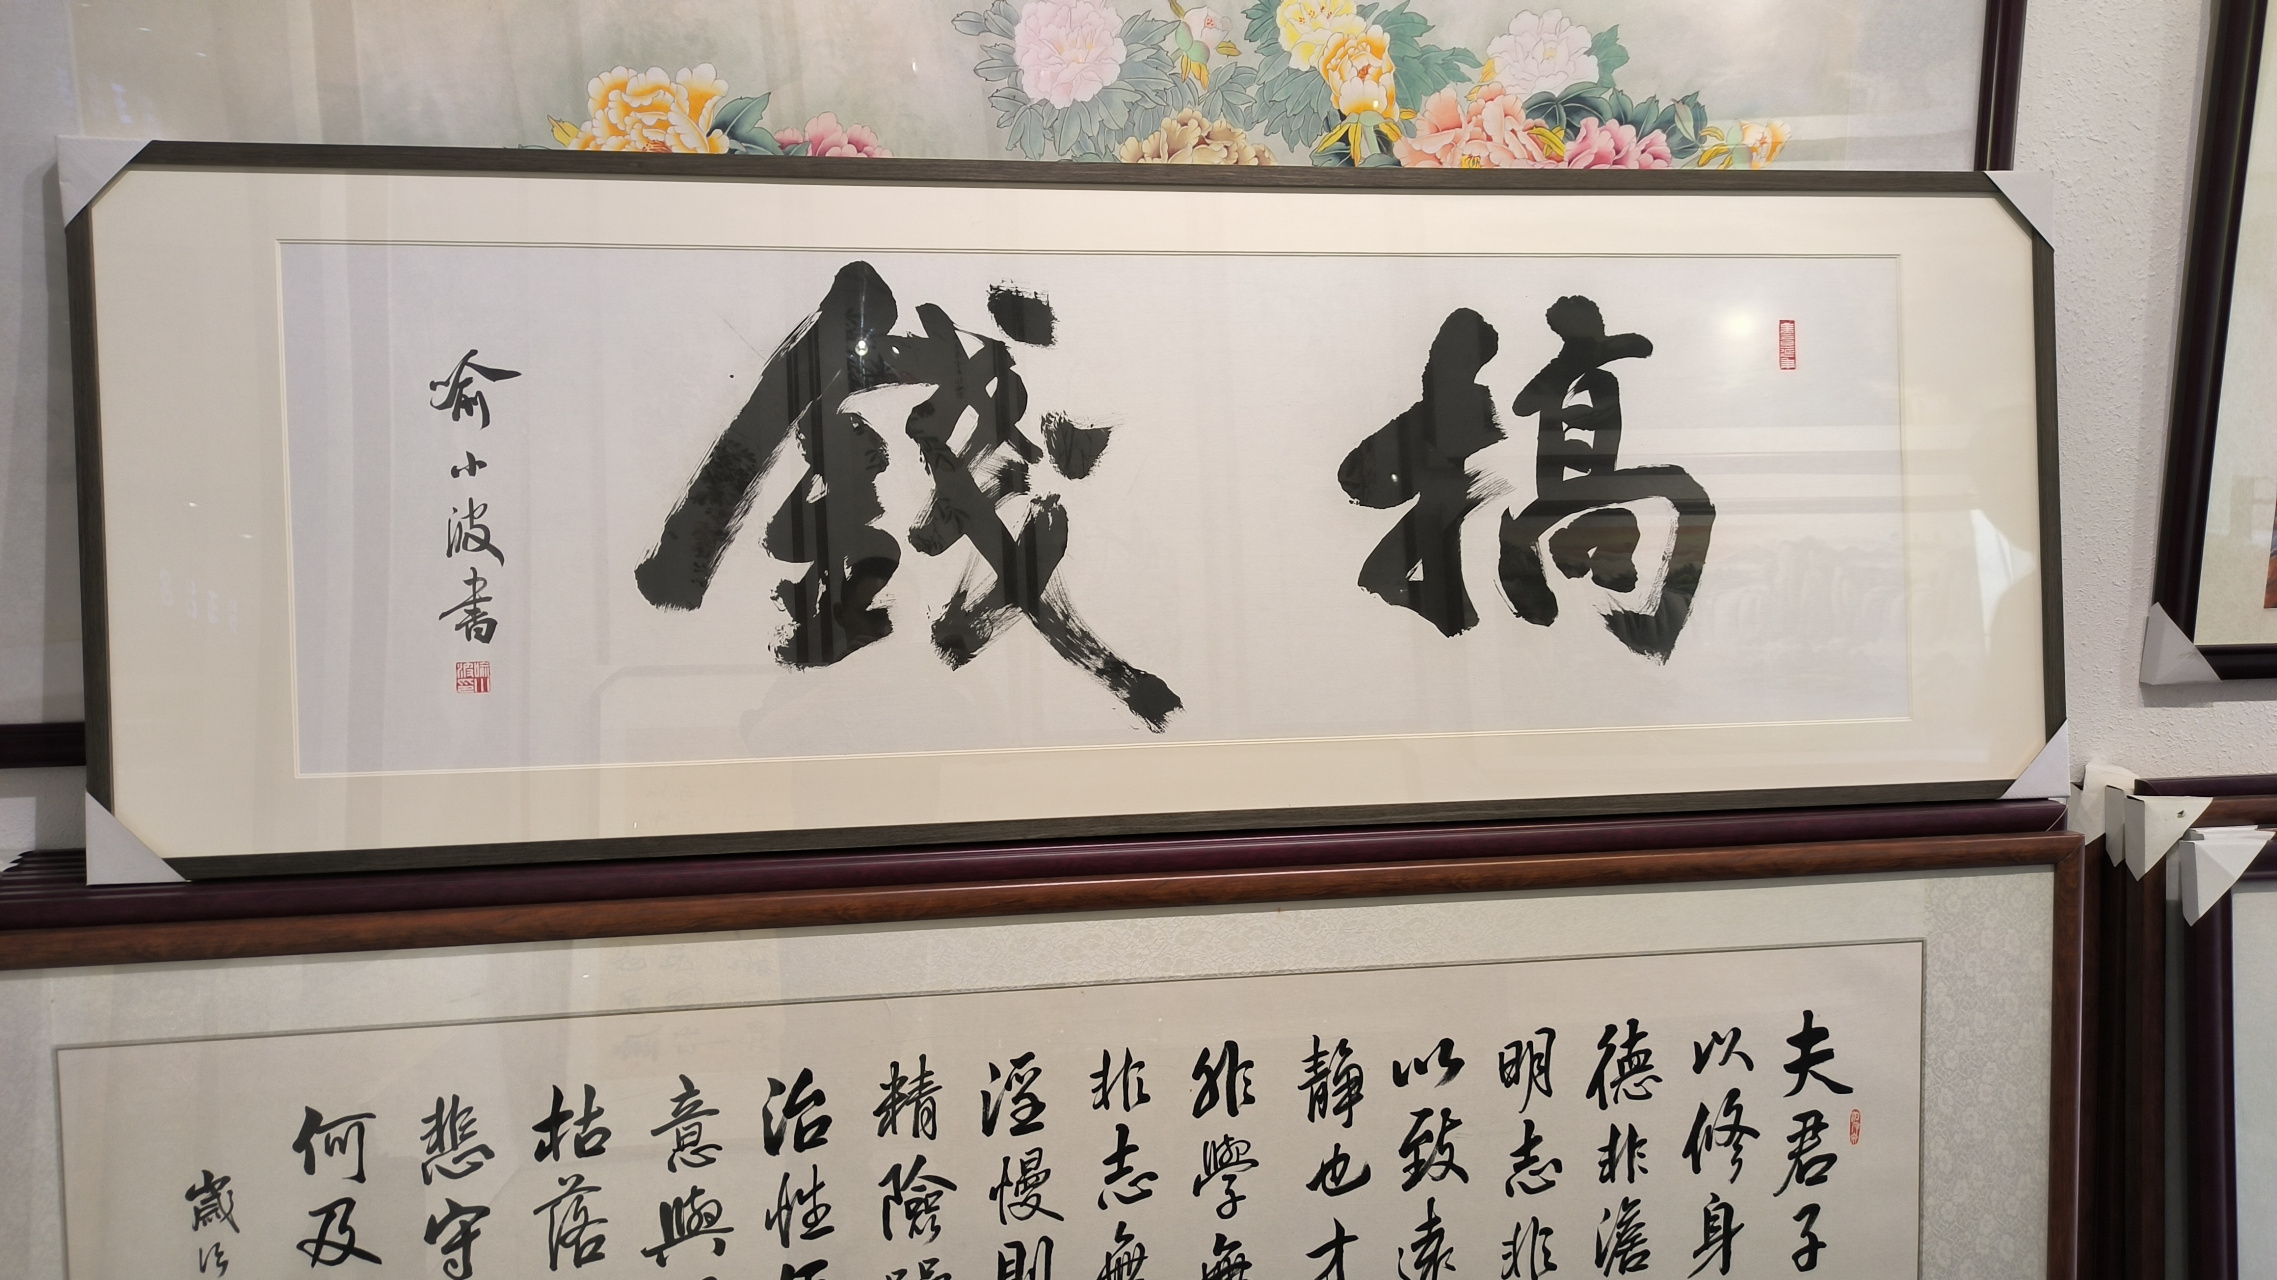 搞錢
喻小波書
夫君子
以修身
德非澹
明志非
以致遠
靜也才
非學無
非志無
淫慢則
精險躁
治性
意與
枯落
悲守
何及
歲次